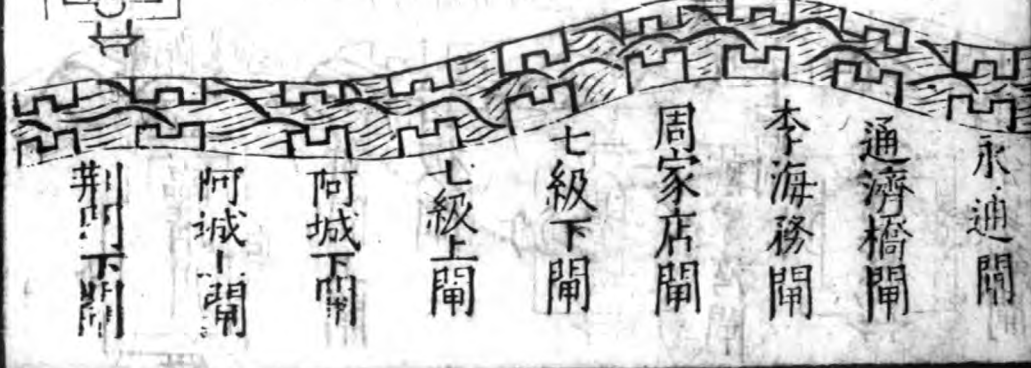 永通閘
通濟橋閘
李海務閘
周家店閘
七級下閘
七級上閘
阿城下閘
阿城上閘
荆門下閘